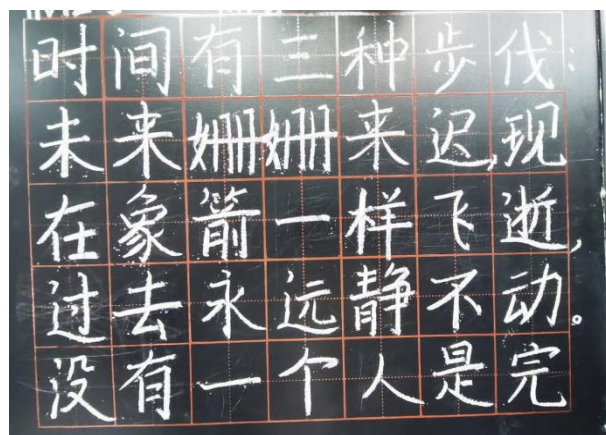 时间有三种步伐：
未来姗姗来迟,现
在象箭一样飞逝,
过去永远静不动。
没有一个人是完